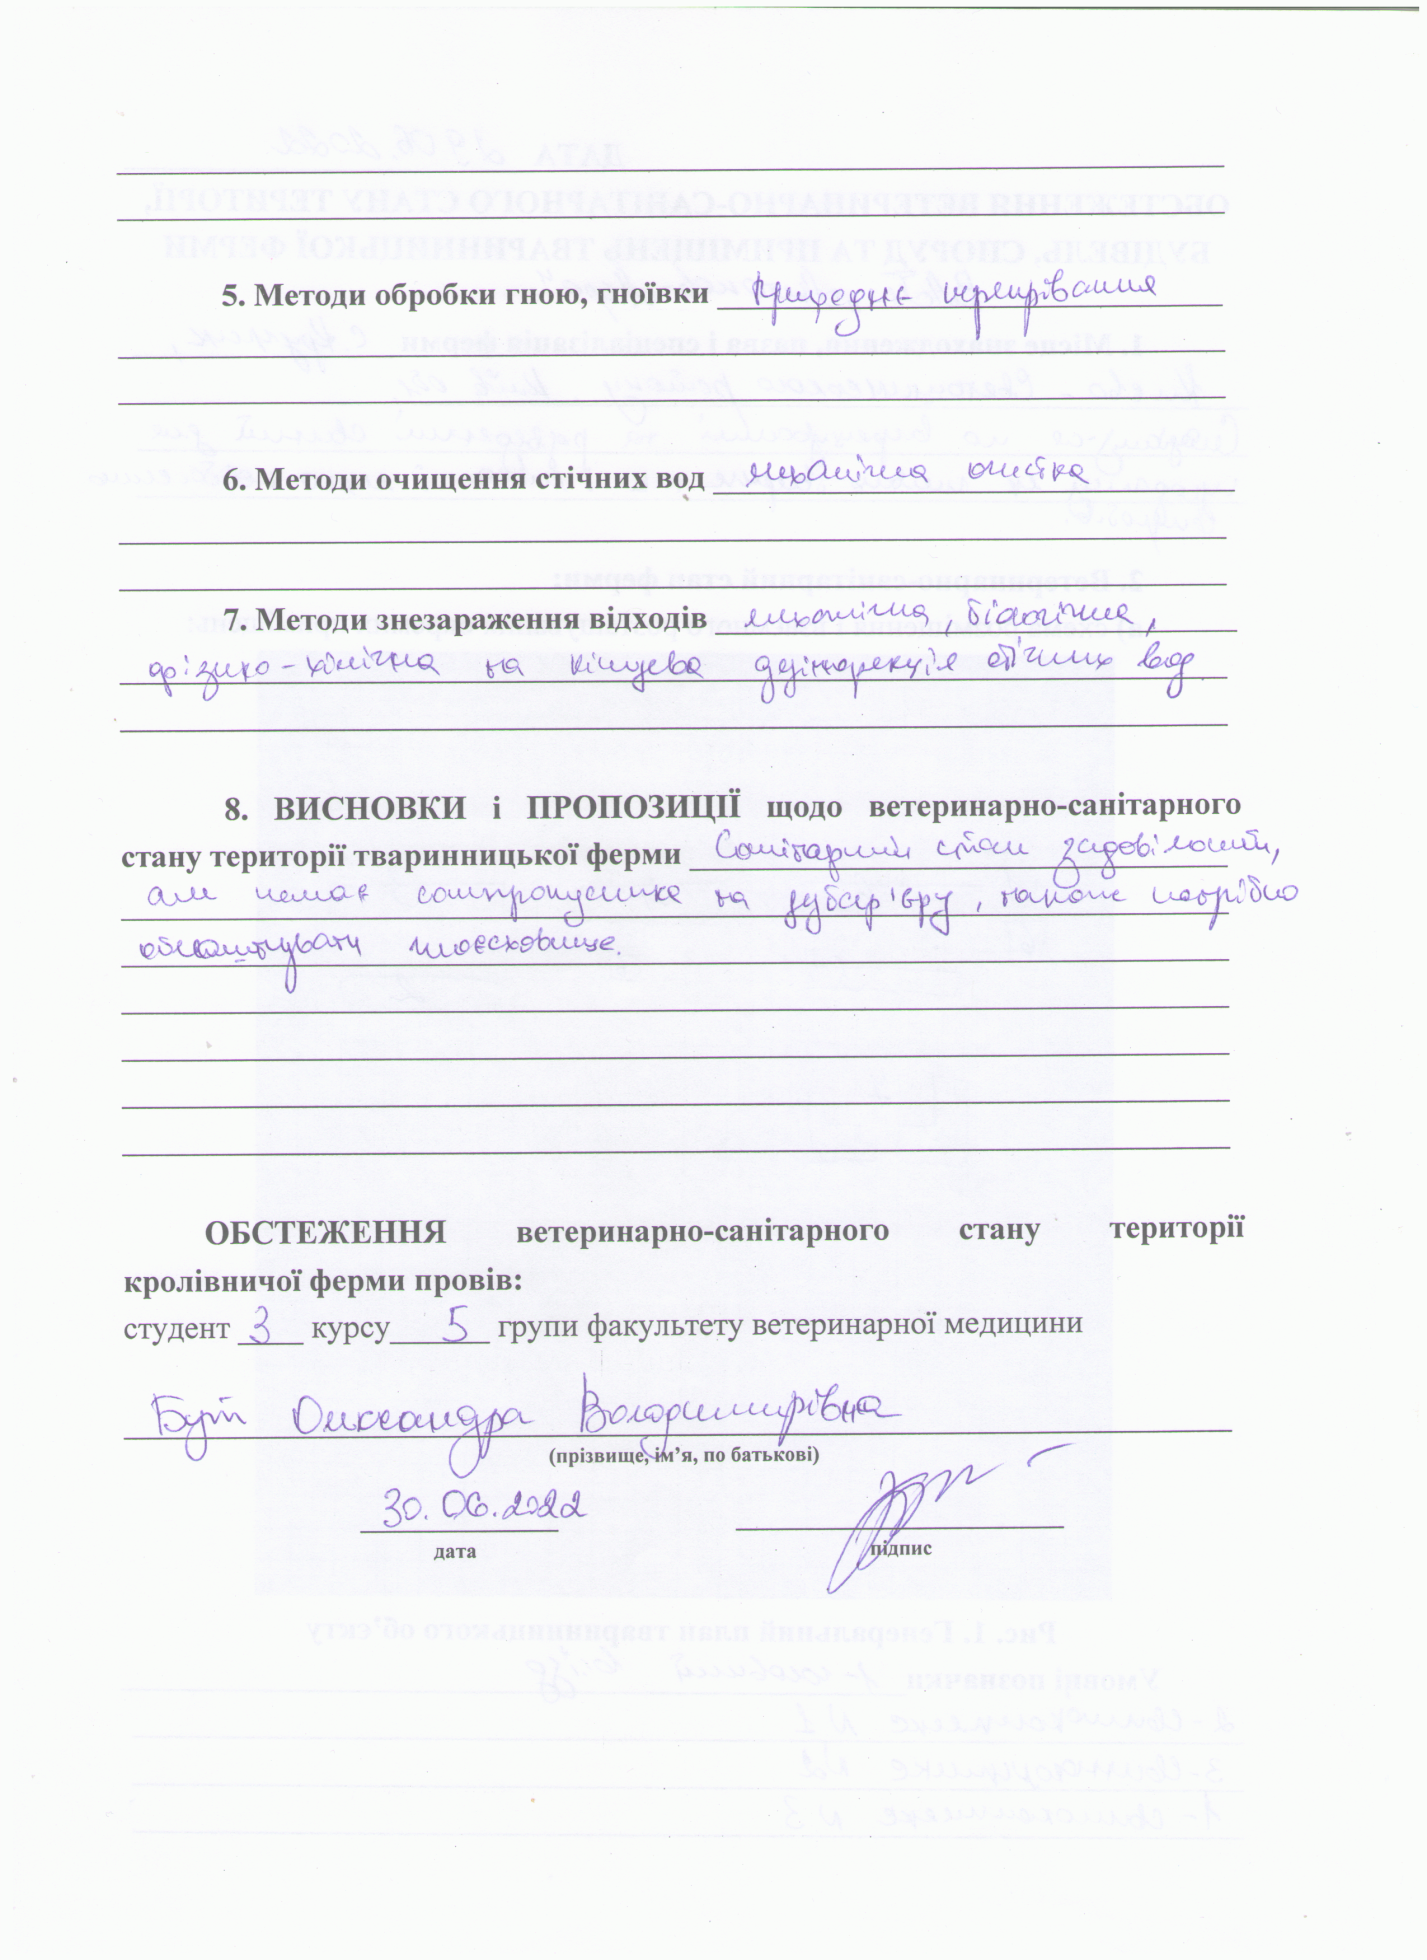 5. Методи обробки гною, гноївки Природнє перепрівання
6. Методи очищення стічних вод механічна очистка
7. Методи знезараження відходів механічна, біологічна,
фізико-хімічна та кінцева дезінфекція стічних вод
8. ВИСНОВКИ і ПРОПОЗИЦІЇ щодо ветеринарно-санітарного
стану території тваринницької ферми Санітарний стан задовільний,
але немає санпропускника та дезбар'єру, також потрібно
облаштувати гноєсховище.
ОБСТЕЖЕННЯ ветеринарно-санітарного стану території
кролівничої ферми провів:
студент 3 курсу 5 групи факультету ветеринарної медицини
Бут Олександра Володимирівна
(прізвище, ім’я, по батькові)
30.06.2022
дата підпис